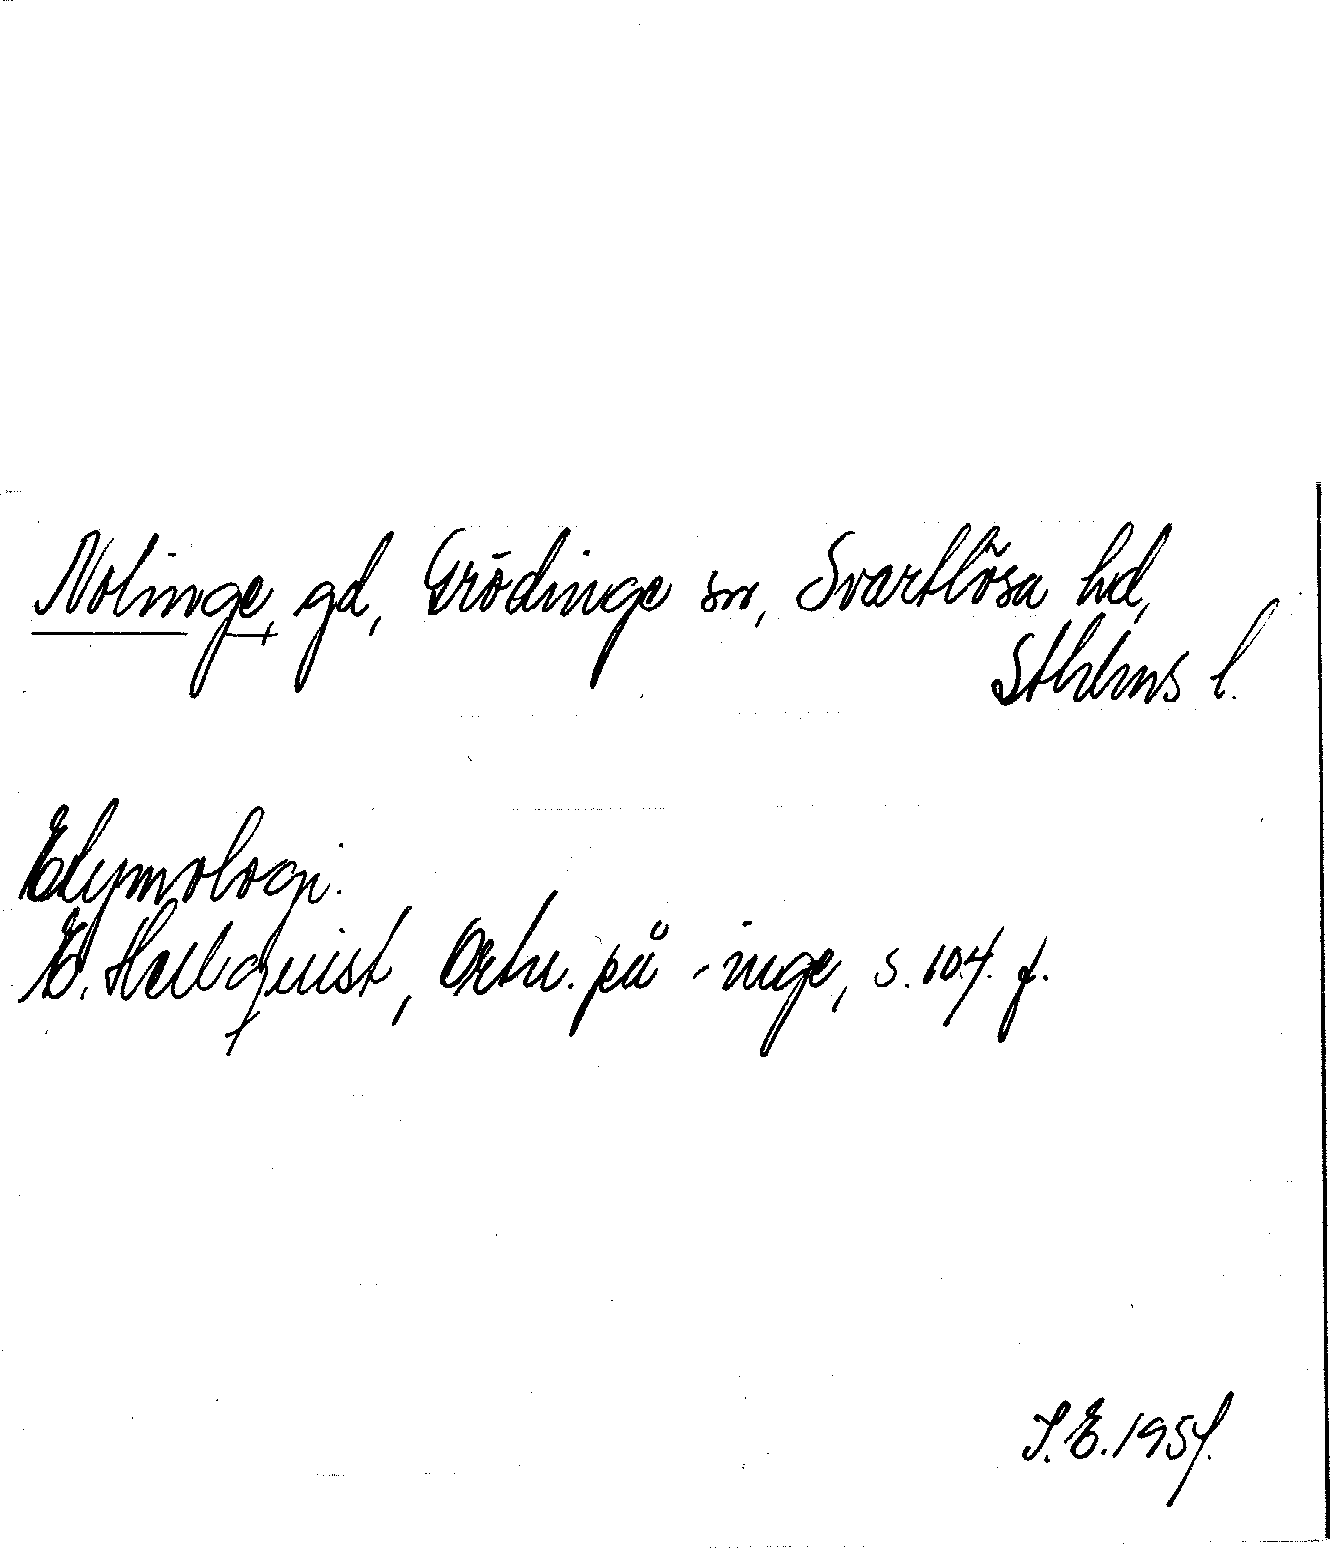 Nolinge, gd, Grödinge sn, Svartlösa hd,
Sthlms l.
Etymologi.
E. Hellquist, Ortn. på -inge, s. 104. f.
S.E. 1954.